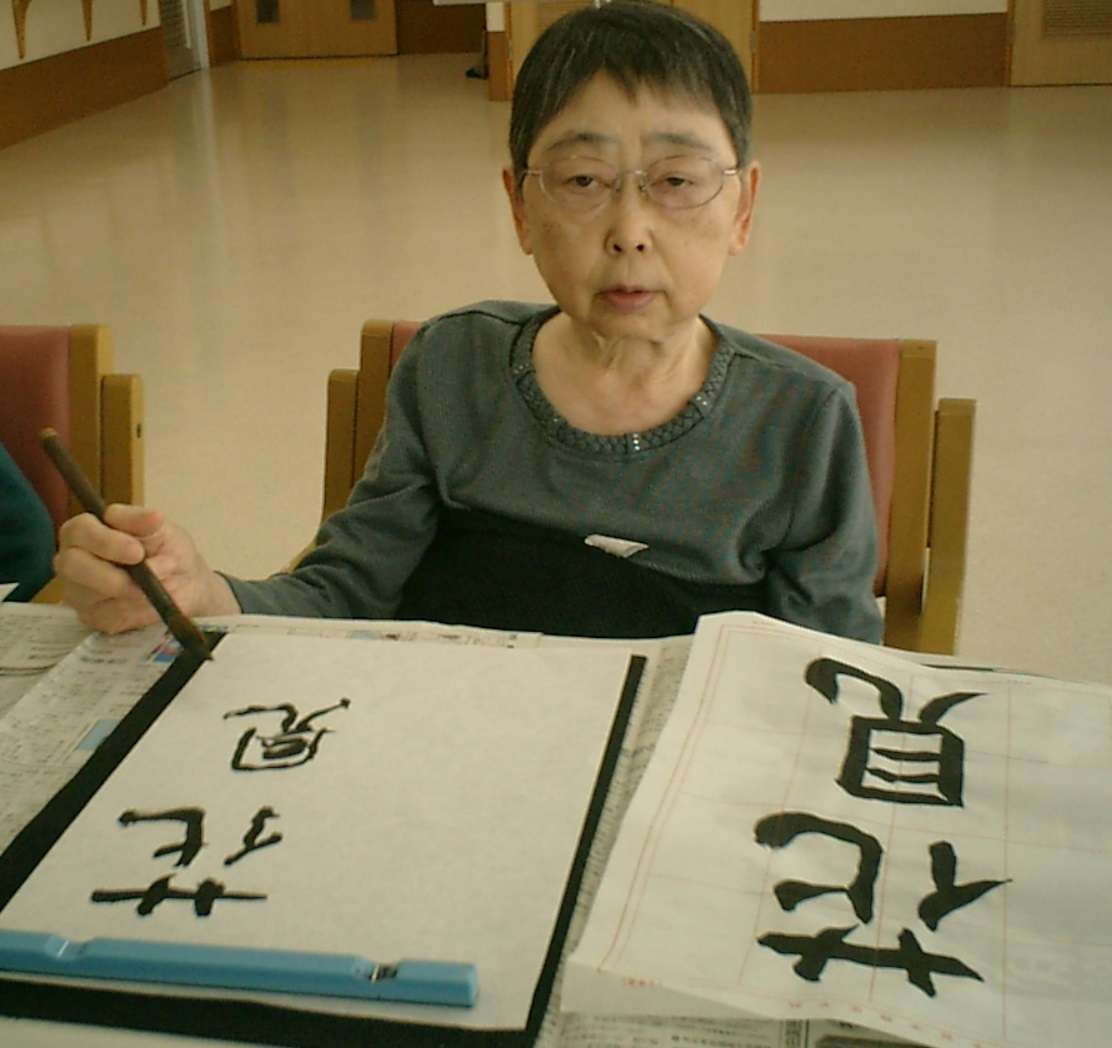 花見
花見